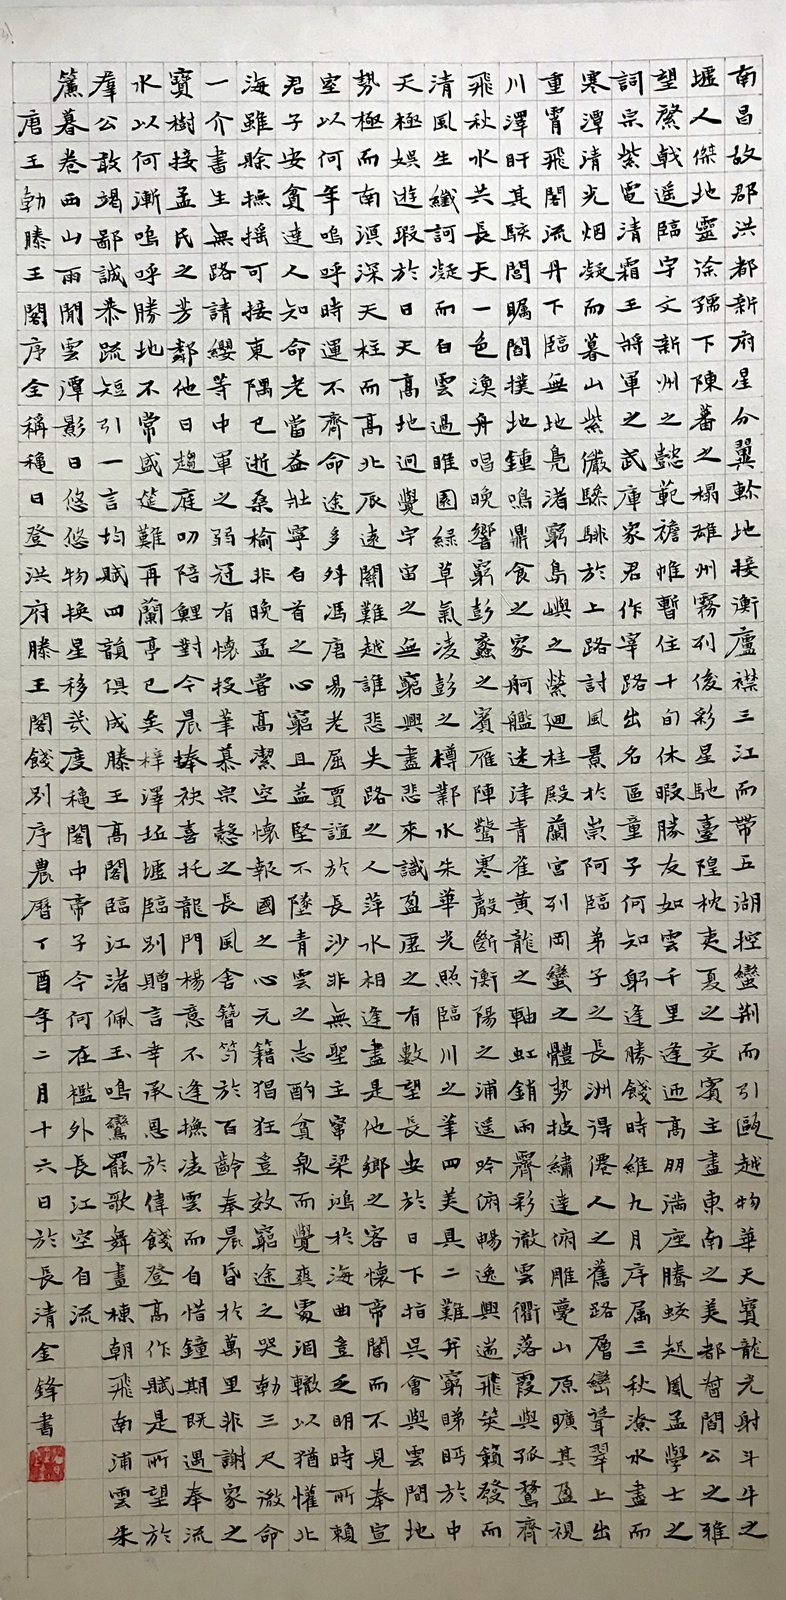 南昌故郡洪都新府星分翼軫地接衡廬襟三江而帶五湖控蠻荊而引甌越物華天寶龍光射斗牛之
墟人傑地靈徐孺下陳蕃之榻雄州霧列俊彩星馳臺隍枕夷夏之交賓主盡東南之美都督閻公之雅
望棨戟遥臨宇文新州之懿範襜帷暫住十旬休暇勝友如雲千里逢迎高朋滿座騰蛟起鳳孟學士之
詞宗紫電清霜王將軍之武庫家君作宰路出名區童子何知躬逢勝餞時維九月序属三秋潦水盡而
寒潭清光烟凝而暮山紫儼驂騑於上路討風景於崇阿臨弟子之長洲得僊人之舊路層巒聳翠上出
重霄飛閣流丹下臨無地鳧渚窮島嶼之縈廻桂殿蘭宮列岡巒之體勢披繡達俯雕甍山原曠其盈視
川澤盱其駭閻矚閻撲地鍾鳴鼎食之家舸艦迷津青雀黃龍之軸虹銷雨霽彩徹雲衢落霞與孤鶩齊
飛秋水共長天一色漁舟唱晚響窮彭蠡之賓雁陣驚寒聲斷衡陽之浦遥吟俯暢逸興遄飛笑籟發而
清風生纖訶凝而白雲過睢園綠草氣凌彭之樽鄴水朱華光照臨川之筆四美具二難并窮睇眄於中
天極娛遊瑕於日天高地迥覺宇宙之無窮興盡悲來識盈虛之有數望長安於日下指吳會與雲間地
勢極而南溟深天柱而高北辰遠關難越誰悲失路之人萍水相逢盡是他鄉之客懷帝閽而不見奉宣
室以何年嗚呼時運不齊命途多舛馮唐易老屈賈誼於長沙非無聖主竄梁鴻於海曲豈乏明時所賴
君子安貧達人知命老當益壯寧白首之心窮且益堅不墜青雲之志酌貪泉而覺爽處涸轍以猶懽北
海雖賒撫搖可接東隅已逝桑榆非晚孟嘗高潔空懷報國之心元籍猖狂豈效窮途之哭勃三尺微命
一介書生無路請纓等中軍之弱冠有懷投筆慕宗慤之長風舍簪笏於百齡奉晨昏於萬里非謝家之
寶樹接孟氏之芳鄰他日趨庭叨陪鯉對今晨捧袂喜托龍門楊意不逢撫凌雲而自惜鐘期既遇奉流
水以何漸嗚呼勝地不常盛筵難再蘭亭已矣梓澤坵墟臨別贈言幸承恩於偉餞登高作賦是所望於
羣公敢竭鄙誠恭疏短引一言均賦四韻俱成滕王高閣臨江渚佩玉鳴鸞罷歌舞畫棟朝飛南浦雲朱
簾暮卷西山雨閒雲潭影日悠悠物換星移幾度穐閣中帝子今何在檻外長江空自流
唐王勃滕王閣序全稱穐日登洪府滕王閣餞別序農曆丁酉年二月十六日於長清金鋒書